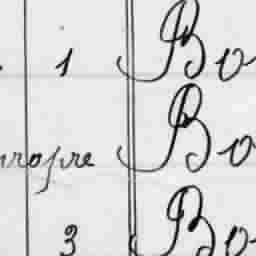 1 Bo
propre Bo
3 Bo